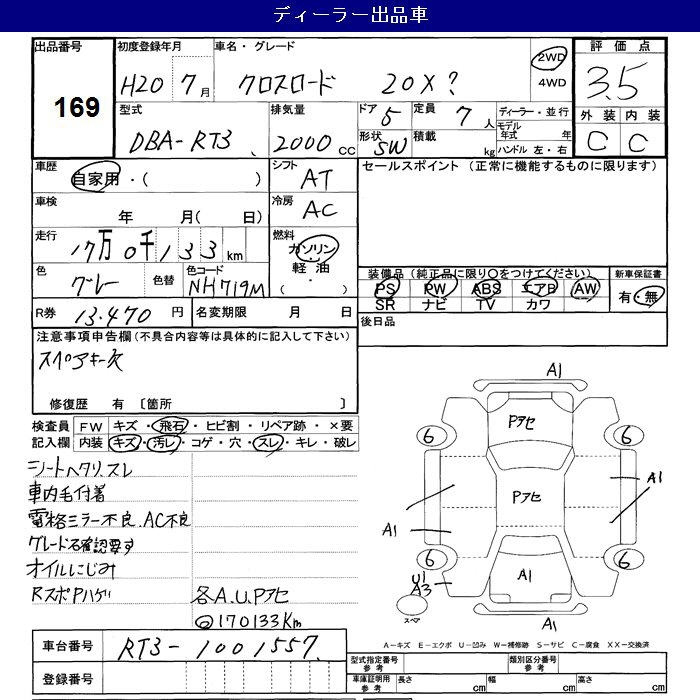 ディーラー出品車
出品番号
169
初度登録年月
H20 7月
車名・グレード
クロスロード 20X?
2WD
4WD
評価点
3.5
外装 内装
C C
型式
DBA-RT3
排気量
2000 CC
ドア 5
定員 7人
形状 SW
積載 kg
ディーラー・並行
モデル年式 年
ハンドル 左・右
車歴
自家用・( )
シフト
AT
セールスポイント (正常に機能するものに限ります)
車検
年 月( 日)
冷房
AC
走行
17万0千133km
燃料
ガソリン
軽油
( ・ )
色
グレー
色替
色コード
NH719M
装備品(純正品に限り○をつけてください)
PS PW ABS エアB AW
SR ナビ TV カワ
新車保証書
有・無
R券 13.470円
名変期限 月 日
後日品
注意事項申告欄(不具合内容等は具体的に記入して下さい)
スペアキー欠
修復歴 有 〔箇所 〕
検査員記入欄
FW キズ・飛石・ヒビ割・リペア跡・×要
内装 キズ・汚レ・コゲ・穴・スレ・キレ・破レ
シートヘタリ、スレ
車内毛付着
電格ミラー不良、AC不良
グレード名確認要す
オイルにじみ
RスポPハゲ
各A.U.Pアセ
◎170133Km
A1
Pアセ
6
6
Pアセ
A1
A1
A1
6
6
A1
U1
A3
スペア
A1
A-キズ E-エクボ U-凹み W-補修跡 S-サビ C-腐食 XX-交換済
車台番号
RT3-1001557
登録番号
型式指定番号
参考
類別区分番号
参考
車庫証明用
参考
長さ cm
幅 cm
高さ cm